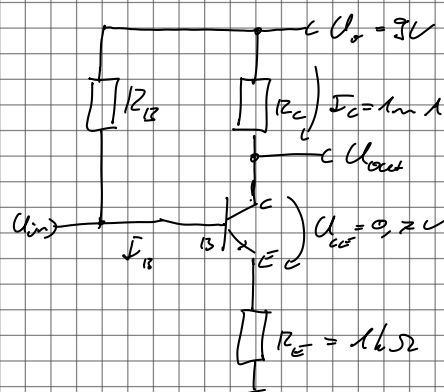 U₀ = 9V
R_B
R_C
I_C = 1mA
U_out
U_in
I_B
B
C
E
U_CE = 0,7V
R_E = 1kΩ